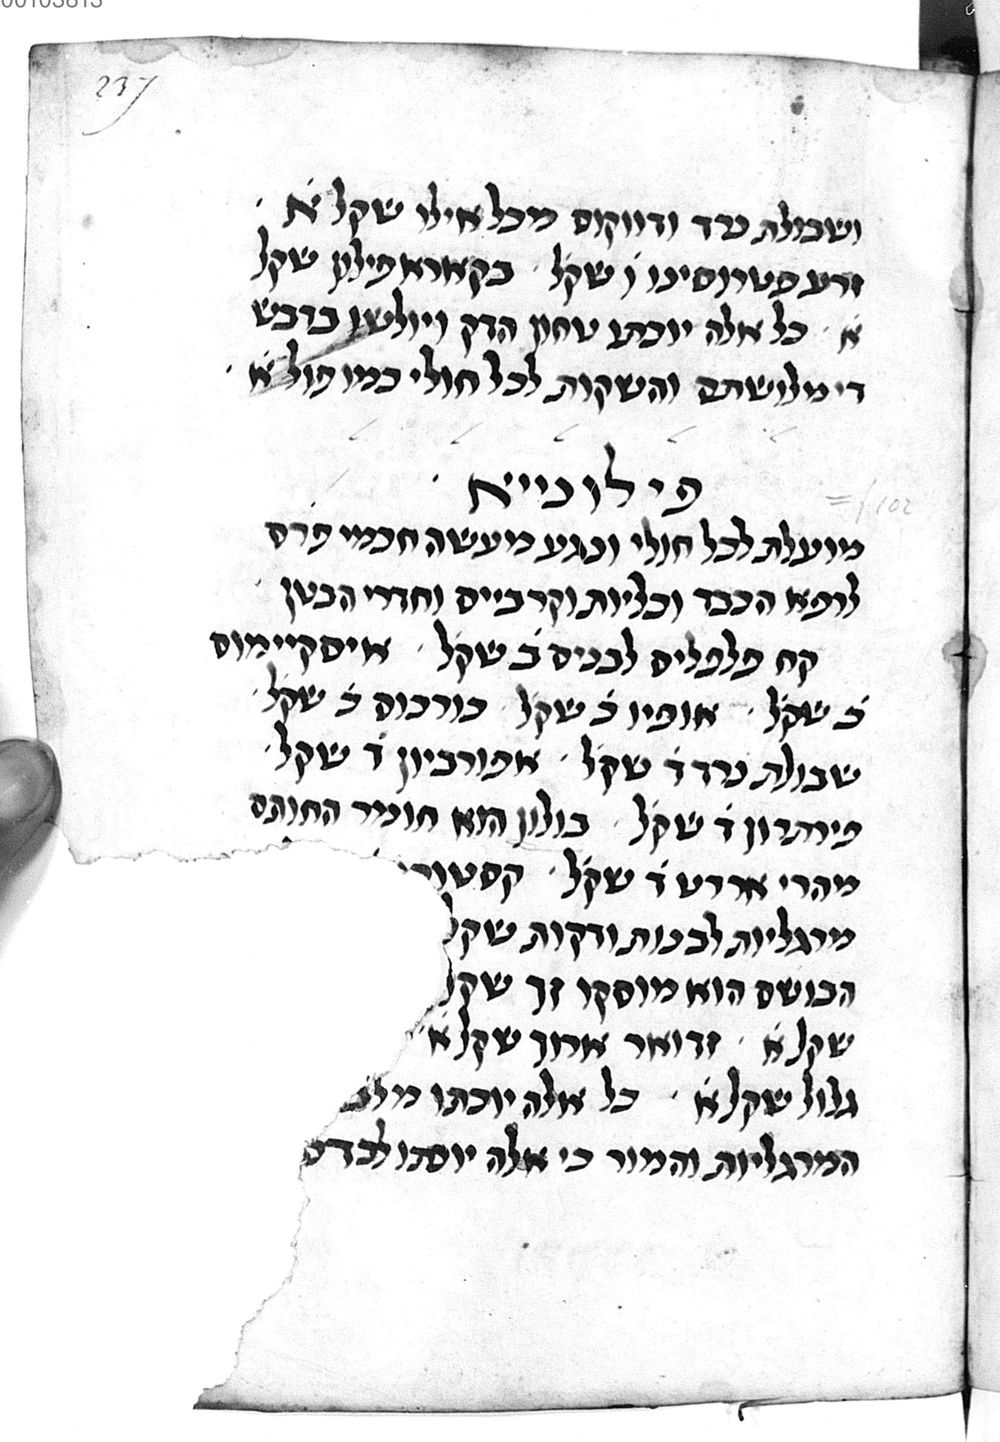 00103813
237
ושבולת נרד ודווקוס מכל אילו שקל א׳ ·
זרע פטרוסינו ו׳ שקל · בקאראפילון שקל
א׳ · כל אלה יוכתו טחון הדק ויולשו בדבש
די מלושתם והשקות לכל חולי כמו פול א׳ ·
פילונייא ·
= f 102
מועלת לכל חולי ונגע מעשה חכמי פרס
לרפא הכבד וכליות וקרביים וחדרי הבטן ·
קח פלפלים לבנים ב׳ שקל · איסקיימוס
ב׳ שקל · אופיו ב׳ שקל · כורכום ב׳ שקל ·
שבולת נרד ד׳ שקל · אפורביון ד׳ שקל ·
פירתרון ד׳ שקל · בולון הוא חומר החותם
מהרי ארדט ד׳ שקל · קסטורי
מרגליות לבנות ודקות שקל
הבושם הוא מוסקו זך שקל
שקל א׳ · זדואר ארוך שקל א׳ ·
גלול שקל א׳ · כל אלה יוכתו
המרגליות והמור כי אלה יוסתו לבדם